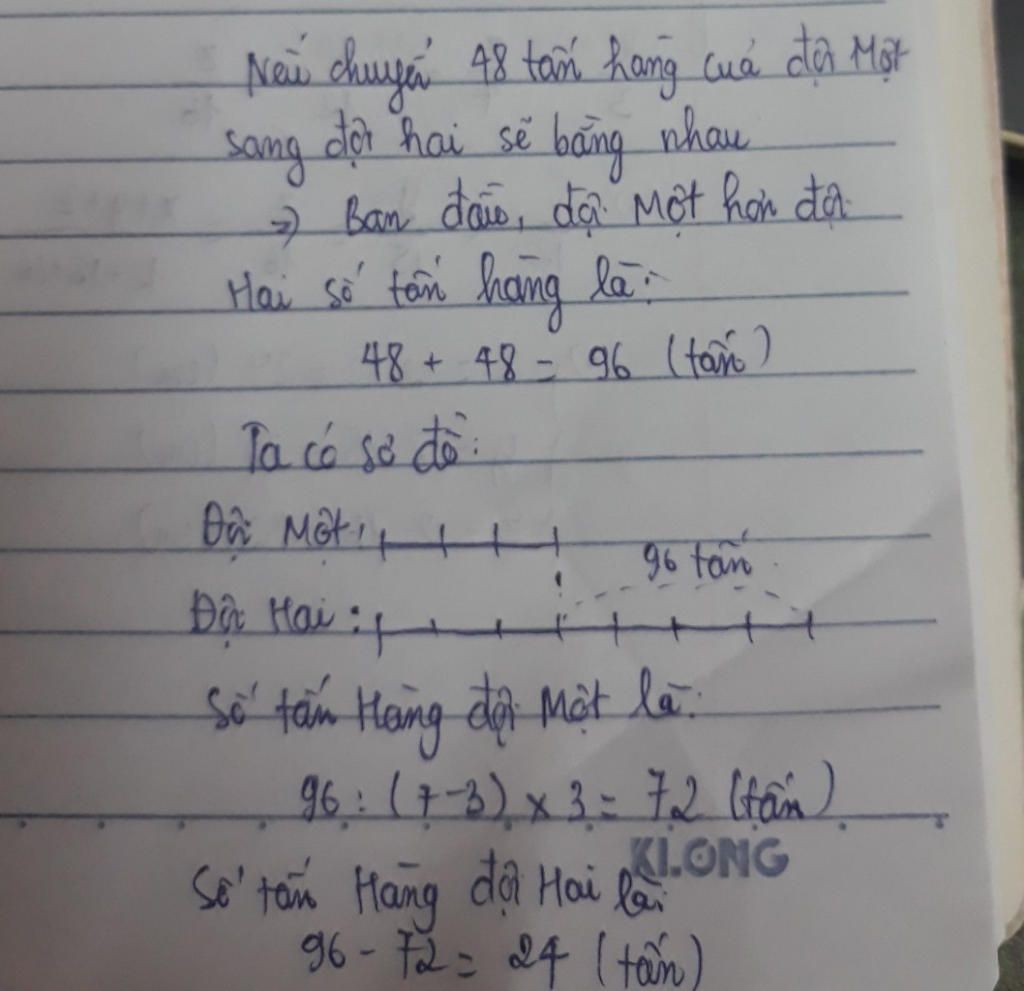 Nếu chuyển 48 tấn hàng cuả đội Một
sang đội hai sẽ bằng nhau
=> Ban đầu, đội Một hơn đội
Hai số tấn hàng là:
48 + 48 = 96 (tấn)
Ta có sơ đồ:
Đội Một:
96 tấn
Đội Hai:
Số tấn Hàng đội Một là:
96 : (7-3) x 3 = 72 (tấn)
KLONG
Số tấn Hàng đội Hai là:
96 - 72 = 24 (tấn)